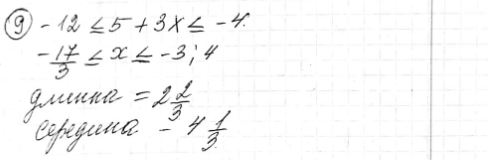 ⑨ -12 ≤ 5 + 3x ≤ -4
-17/3 ≤ x ≤ -3; 4
длинна = 2 2/3
середина - 4 1/3